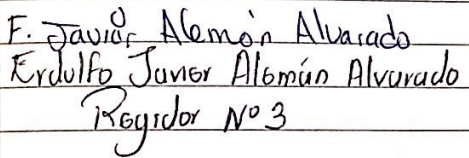 F. Javier Alemán Alvarado
Erdulfo Javier Alemán Alvarado
Regidor Nº 3